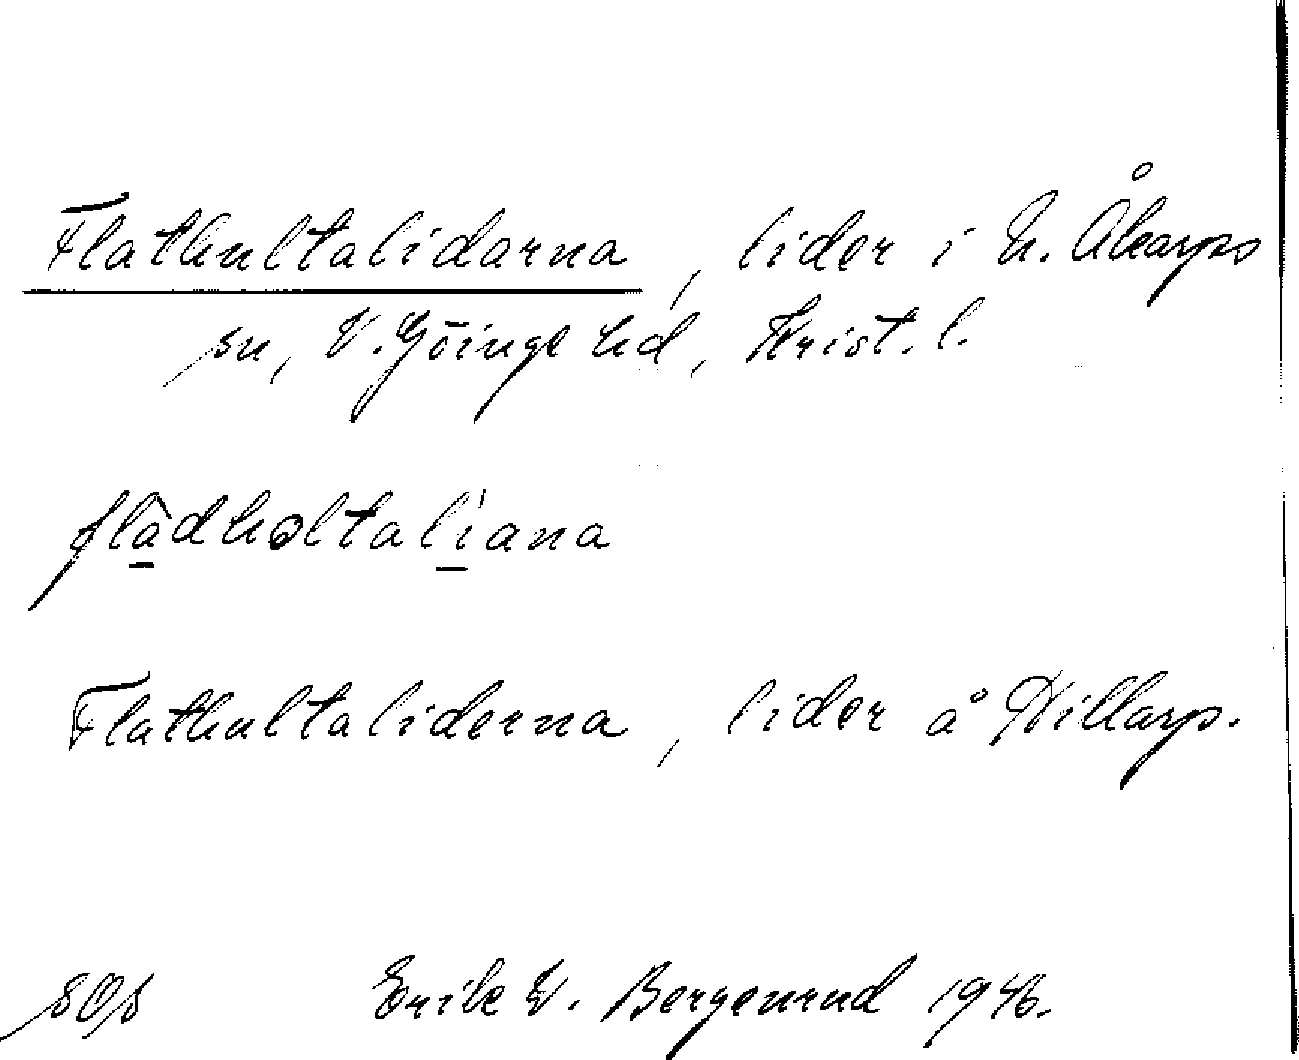 Flathultalidarna, lider i N. Åkarps
sn, V. Göinge hd, Krist. l.
flādhøltalīana
Flathultaliderna, lider å Killarp.
SOS
Erik W. Bergenrud 1946.